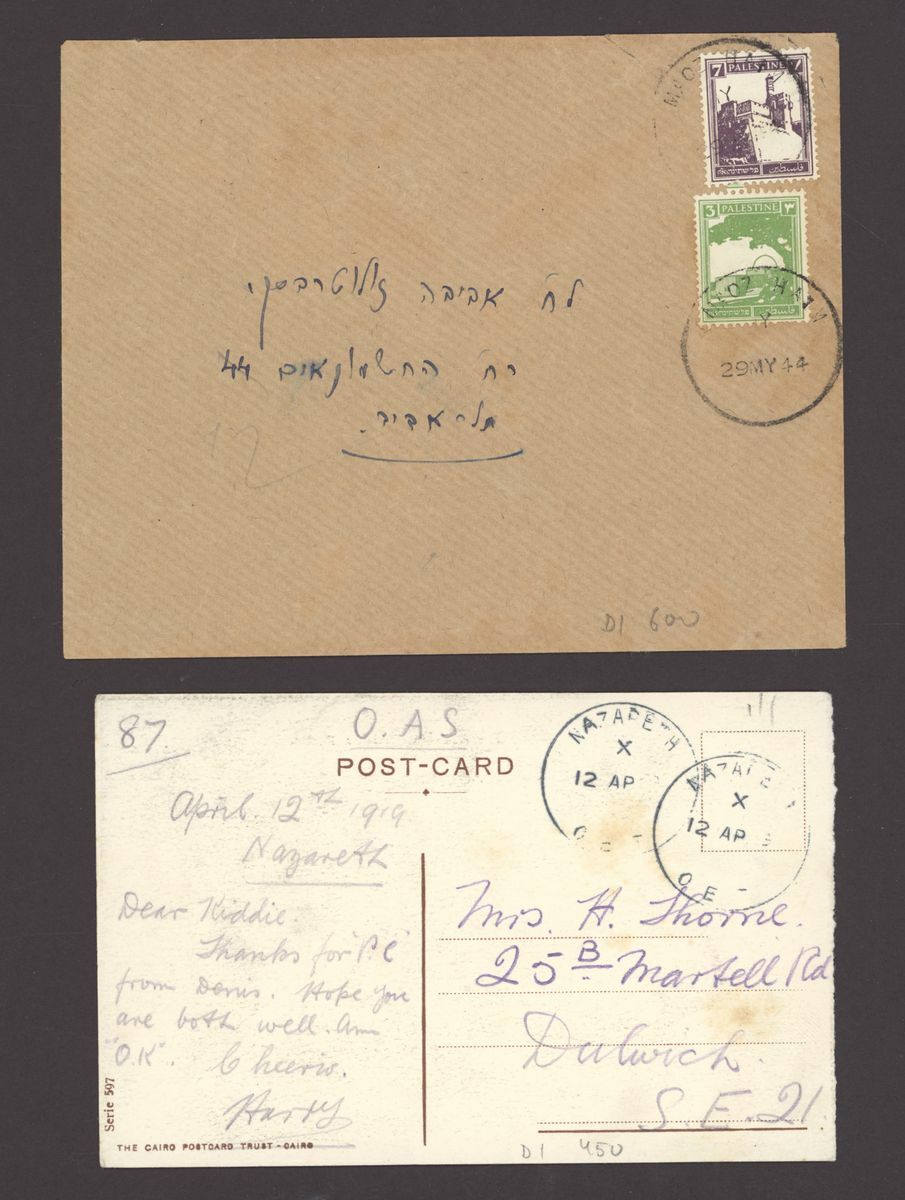 MAOZ HA
7 PALESTINE 7
فلسطين פלשתינה א״י
3 PALESTINE ٣
فلسطين פלשתינה א״י
MAOZ HAIM
Y
29MY44
לח׳ אביבה זלוטרבסקי
רח׳ החשמונאים 44
תל־אביב.
DI 600
87.
O.A.S
POST-CARD
NAZARETH
X
12 AP
O E T
NAZARE
X
12 AP 9
O E
April. 12th 1919
Nazareth
Dear Kiddie.
Thanks for P.C
from Denis. Hope you
are both well. Am
"O.K". Cheerio.
Harry
Mrs. H. Thorne.
25B Martell Rd
Dulwich.
S.E.21
Serie 597
THE CAIRO POSTCARD TRUST - CAIRO
DI 450